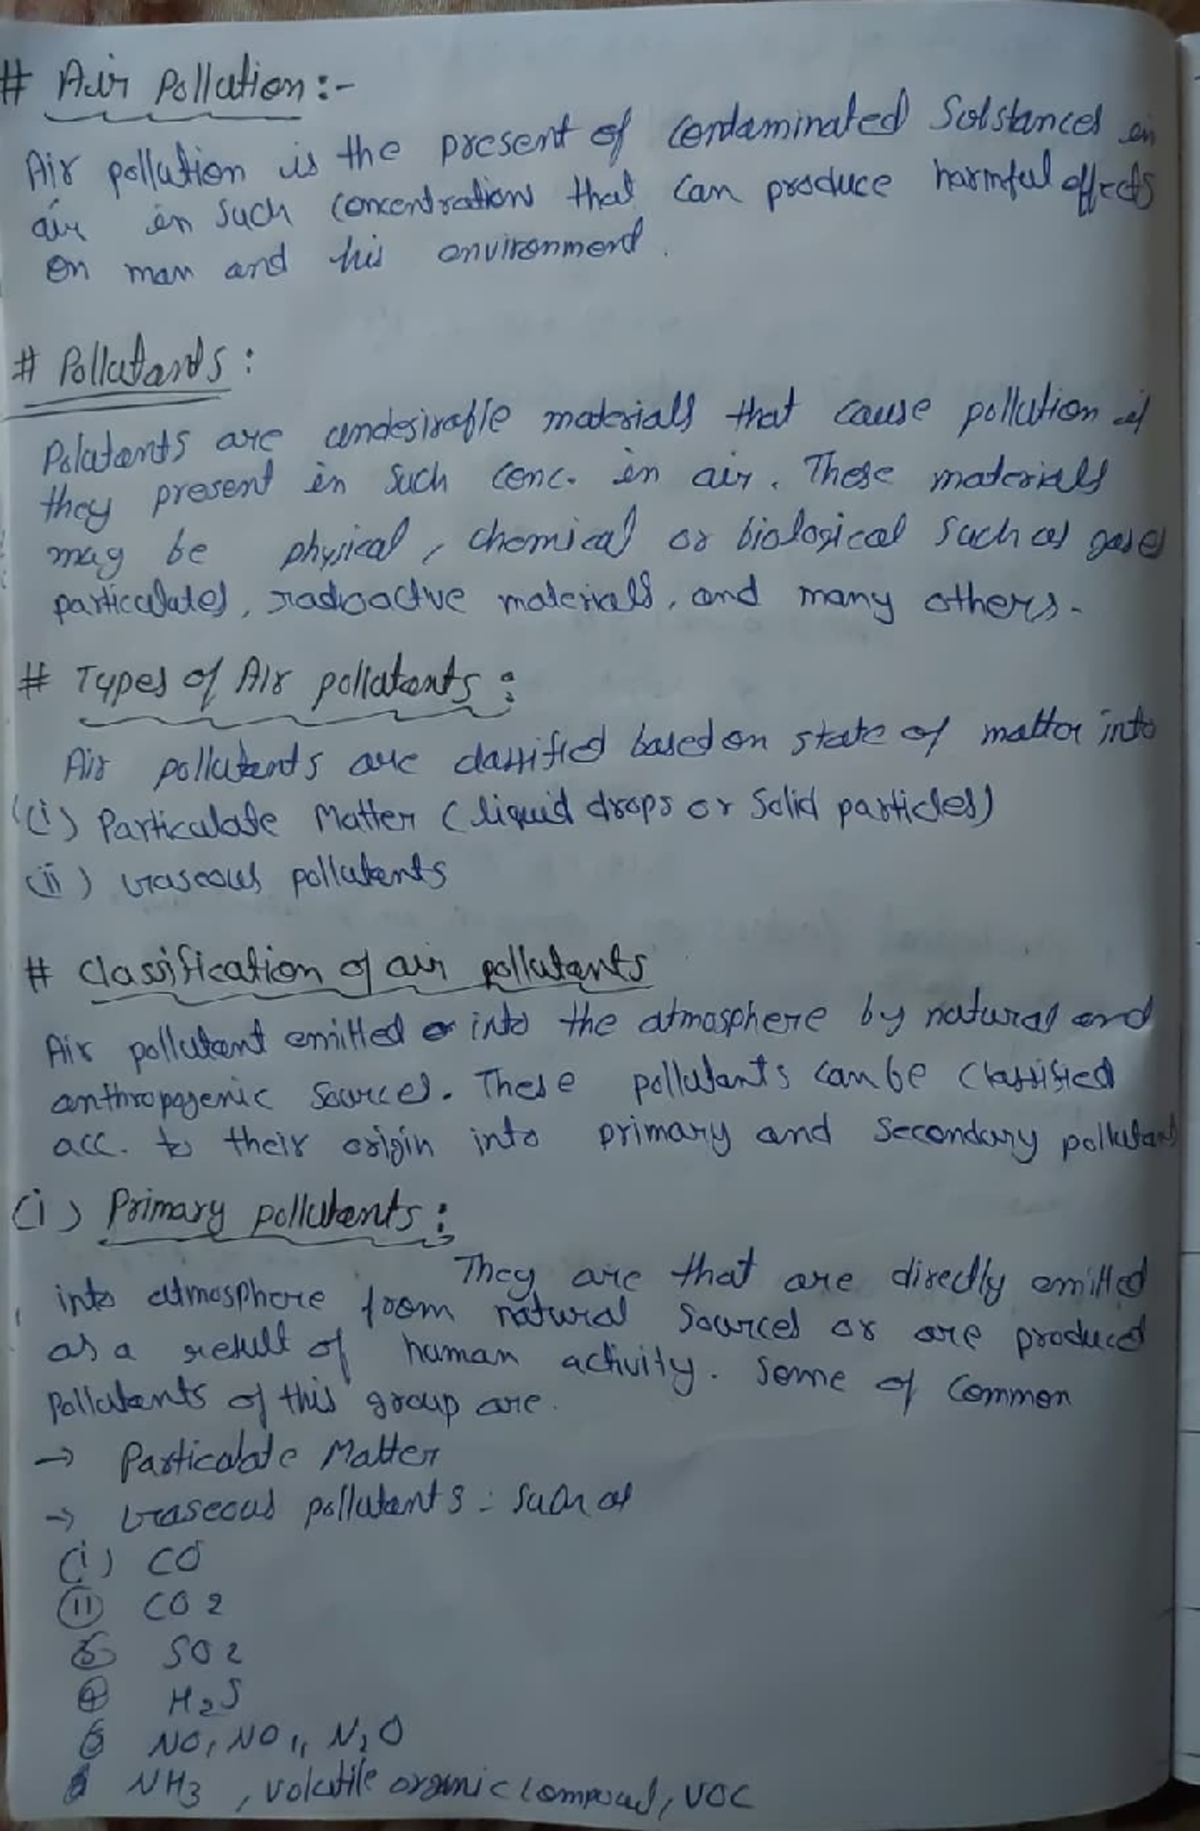 # Air Pollution :-
Air pollution is the present of contaminated Substances in
air in such concentrations that can produce harmful effects
on man and his environment.
# Pollutants :
Polutants are undesirable materials that cause pollution if
they present in such conc. in air. These materials
may be physical, chemical or biological such as gases
particulates, radioactve materials, and many others.
# Types of Air pollutants :
Air pollutants are classified based on state of matter into
(i) Particulate Matter (liquid drops or Solid particles)
(ii) Gaseous pollutants
# Classification of air pollutants
Air pollutant emitted into the atmosphere by natural and
anthropogenic sources. These pollutants can be classified
acc. to their origin into primary and secondary pollutant
(i) Primary pollutants :
They are that are directly emitted
into atmosphere from natural sources or are produced
as a result of human activity. Some of common
Pollutants of this group are.
→ Particulate Matter
→ Gaseous pollutants : such as
(i) CO
(ii) CO2
SO2
(4) H2S
NO, NO, N2O
NH3, volatile organic compound, VOC